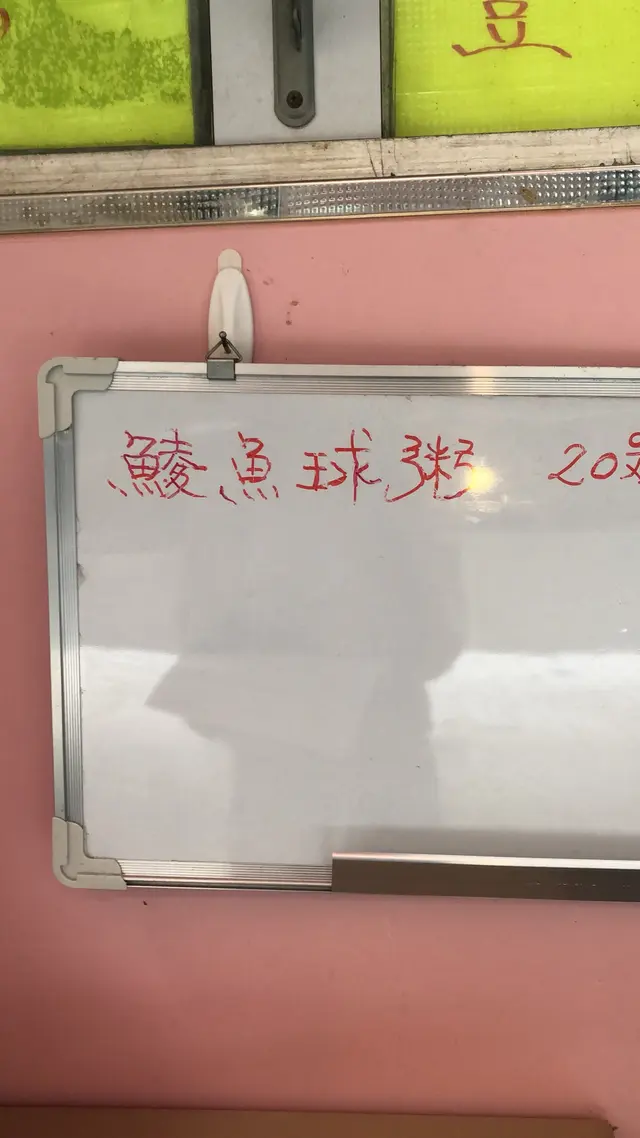 豆
鯪魚球粥 20